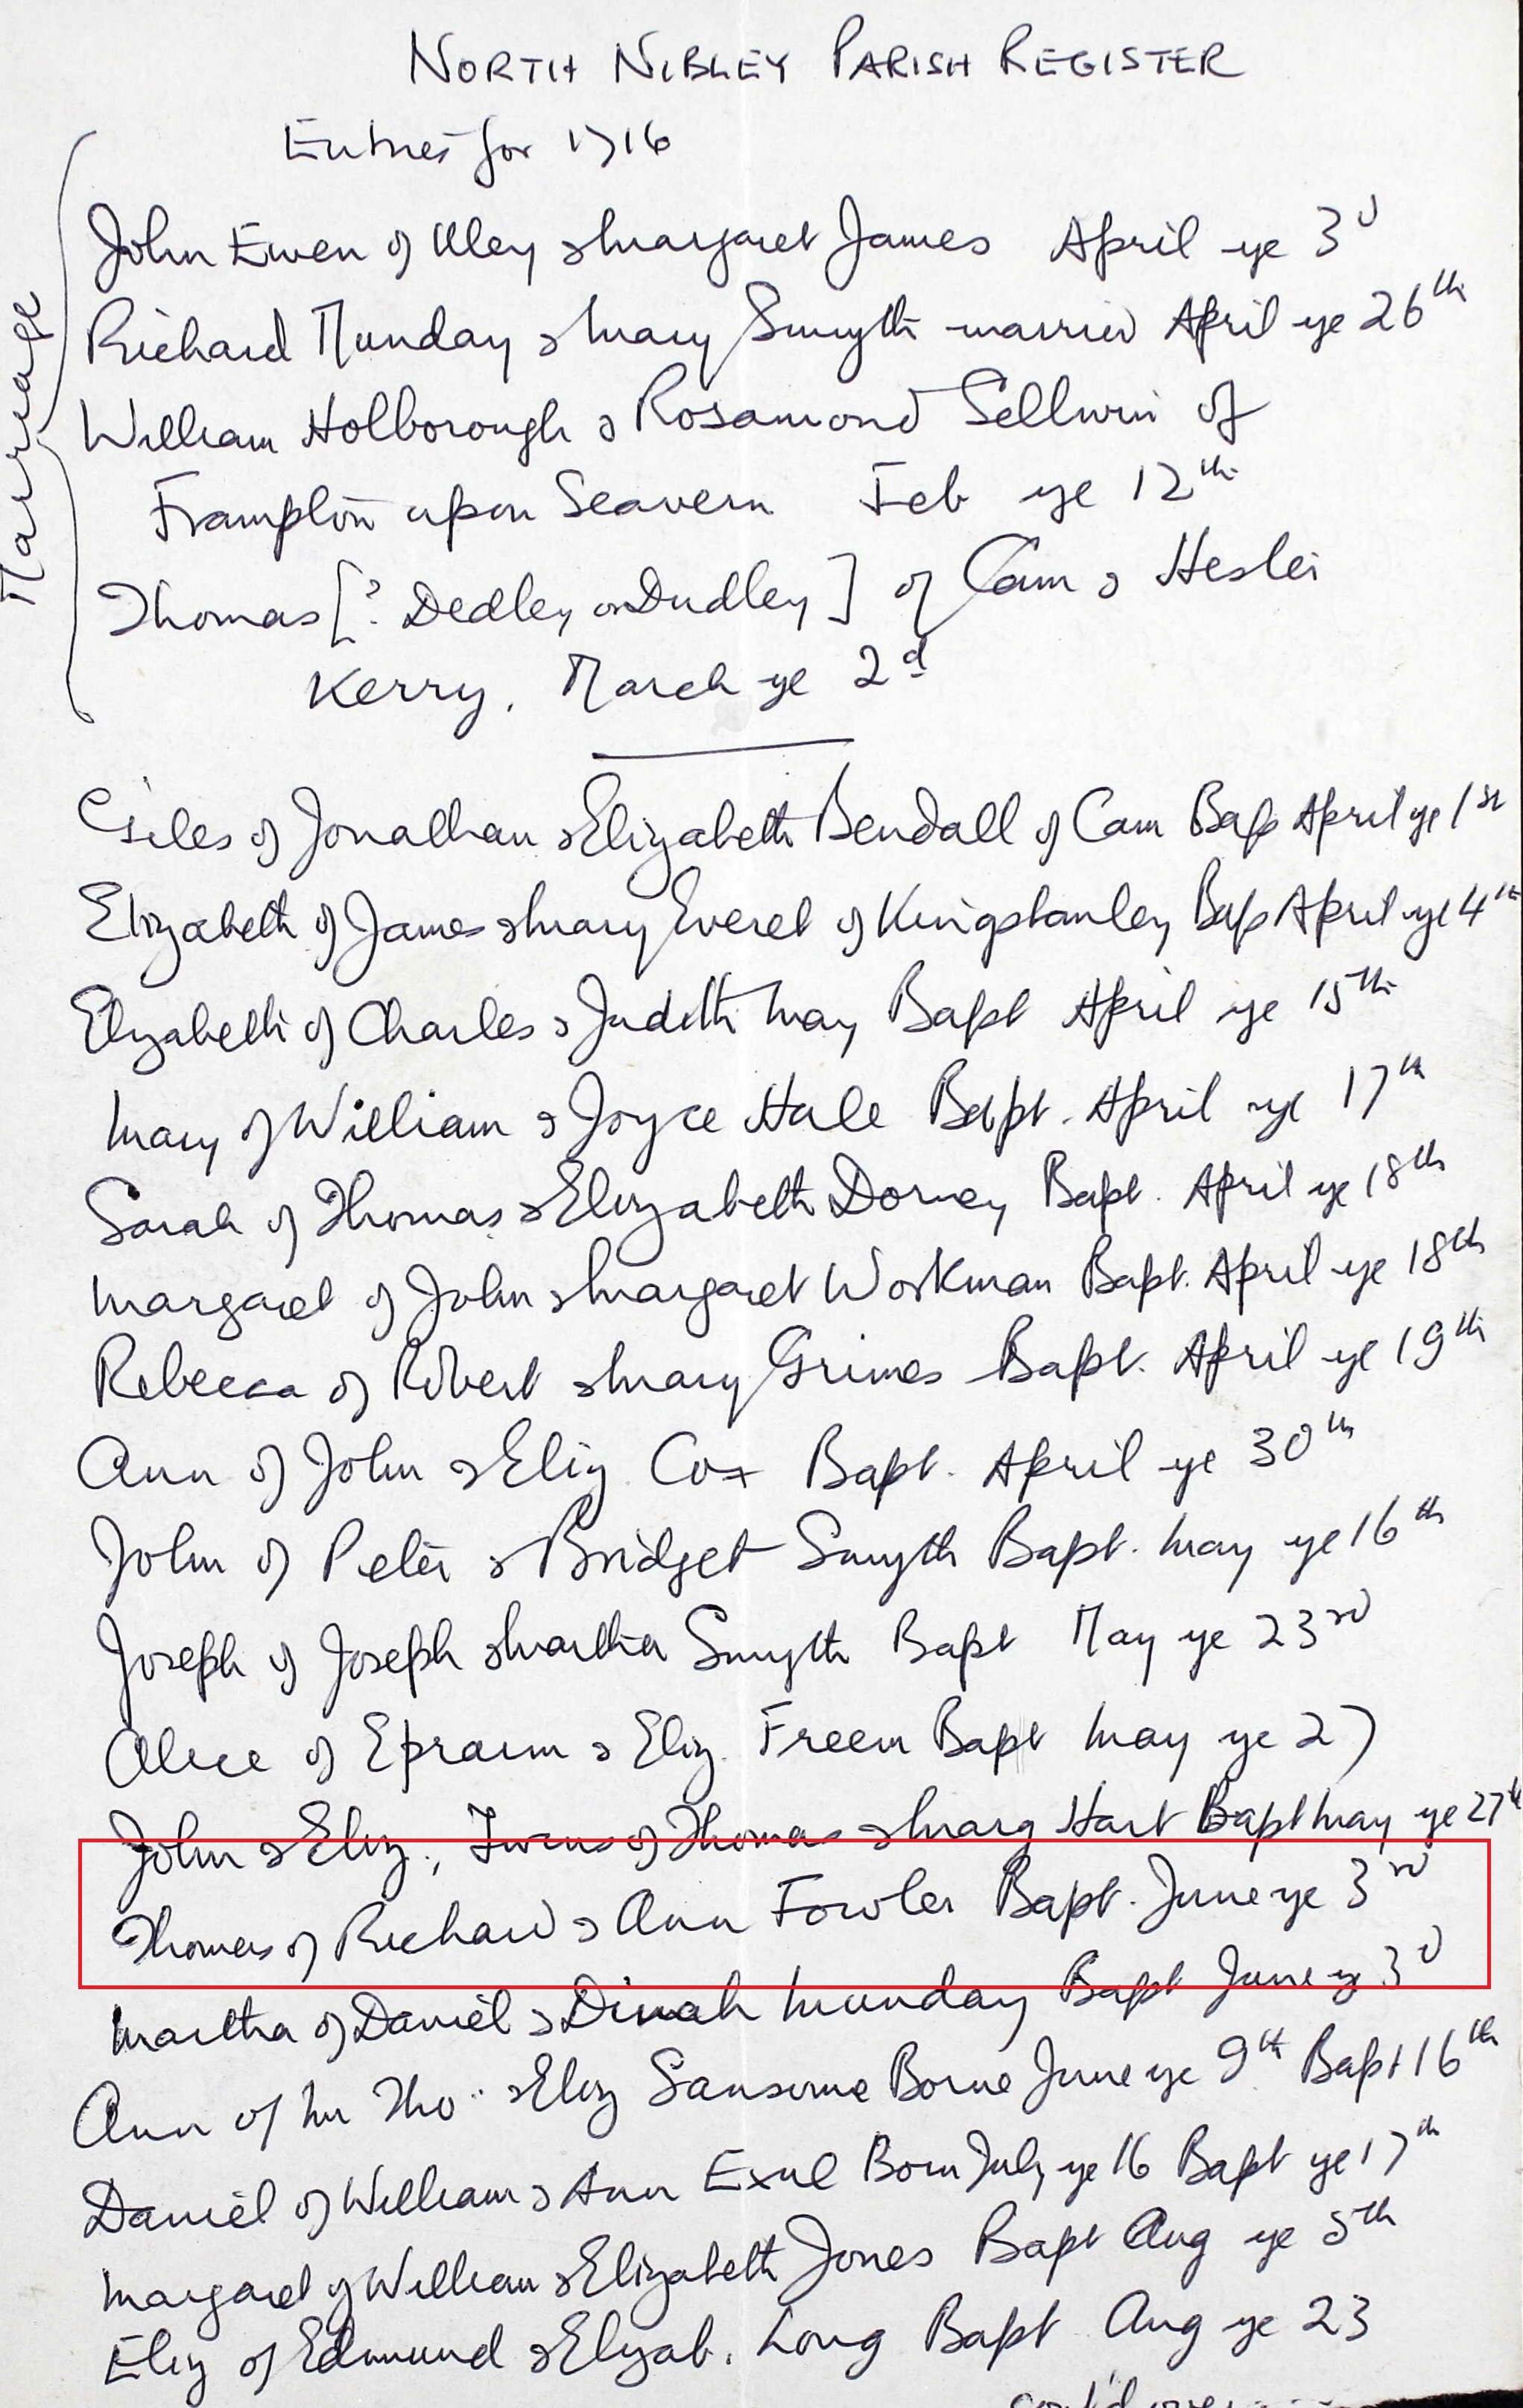 NORTH NIBLEY PARISH REGISTER
Entries for 1716
Marriage
John Ewen of Uley & Margaret James April ye 3d
Richard Munday & Mary Smyth married April ye 26th
William Holborough & Rosamond Sellwin of
Frampton upon Seavern Feb ye 12th
Thomas [? Dedley or Dudley] of Cam & Hester
Kerry, March ye 2d
Giles of Jonathan & Elizabeth Bendall of Cam Bap April ye 1st
Elizabeth of James & Mary Everet of Kingstanley Bap April ye 4th
Elyzabeth of Charles & Judith May Bapt April ye 15th
Mary of William & Joyce Hale Bapt. April ye 17th
Sarah of Thomas & Elizabeth Dorney Bapt. April ye 18th
Margaret of John & Margaret Workman Bapt. April ye 18th
Rebecca of Robert & Mary Grimes Bapt. April ye 19th
Ann of John & Eliz. Cox Bapt. April ye 30th
John of Peter & Bridget Smyth Bapt. May ye 16th
Joseph of Joseph & Martha Smyth Bapt May ye 23rd
Alice of Epraim & Eliz. Freem Bapt May ye 27
John & Eliz., Twins of Thomas & Marg Hart Bapt May ye 27th
Thomas of Richard & Ann Fowler Bapt. June ye 3rd
Martha of Daniel & Dinah Munday Bapt June ye 3d
Ann of Mr Tho: & Eliz Sansome Borne June ye 9th Bapt 16th
Daniel of William & Ann Exul Born July ye 16 Bapt ye 17th
Margaret of William & Elizabeth Jones Bapt Aug ye 5th
Eliz of Edmund & Elyzab. Long Bapt Aug ye 23
cont'd over